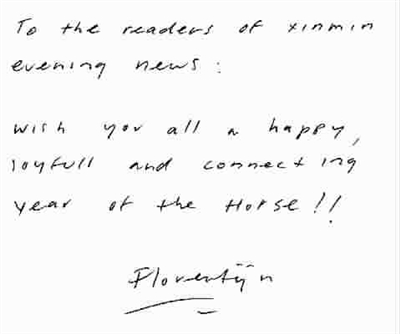 To the readers of xinmin
evening news :
wish you all a happy,
joyfull and connecting
year of the Horse!!
Florentijn